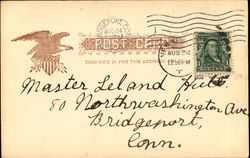 BRIDGEPORT, CONN.
AUG 24
POST CARD
AUG 24
12:30 PM
THIS SIDE IS FOR THE ADDRESS
Master Leland
80 Northwashington Ave
Bridgeport,
Conn.